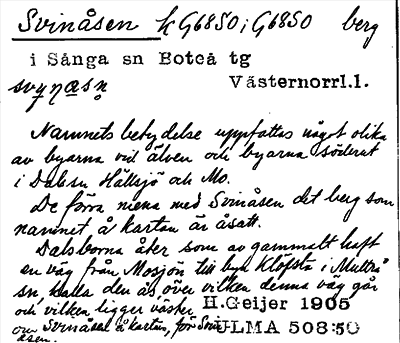 Svinåsen k G6850; G6850 berg
i Sånga sn Boteå tg
Västernorrl.l.
Namnets betydelse uppfattas något olika
av byarna vid älven och byarna söderut
i Dalsn Hällsjö och Mo.
De förra mena med Svinåsen det berg som
namnet å kartan är åsatt.
Dalsborna åter som av gammalt haft
en väg från Mosjön till byn Klöfsta i Multrå
sn, kalla den ås över vilken denna väg går
och vilken ligger väster H.Geijer 1905
om Svinåsen å kartan, för Svin ULMA 508:50
åsen.